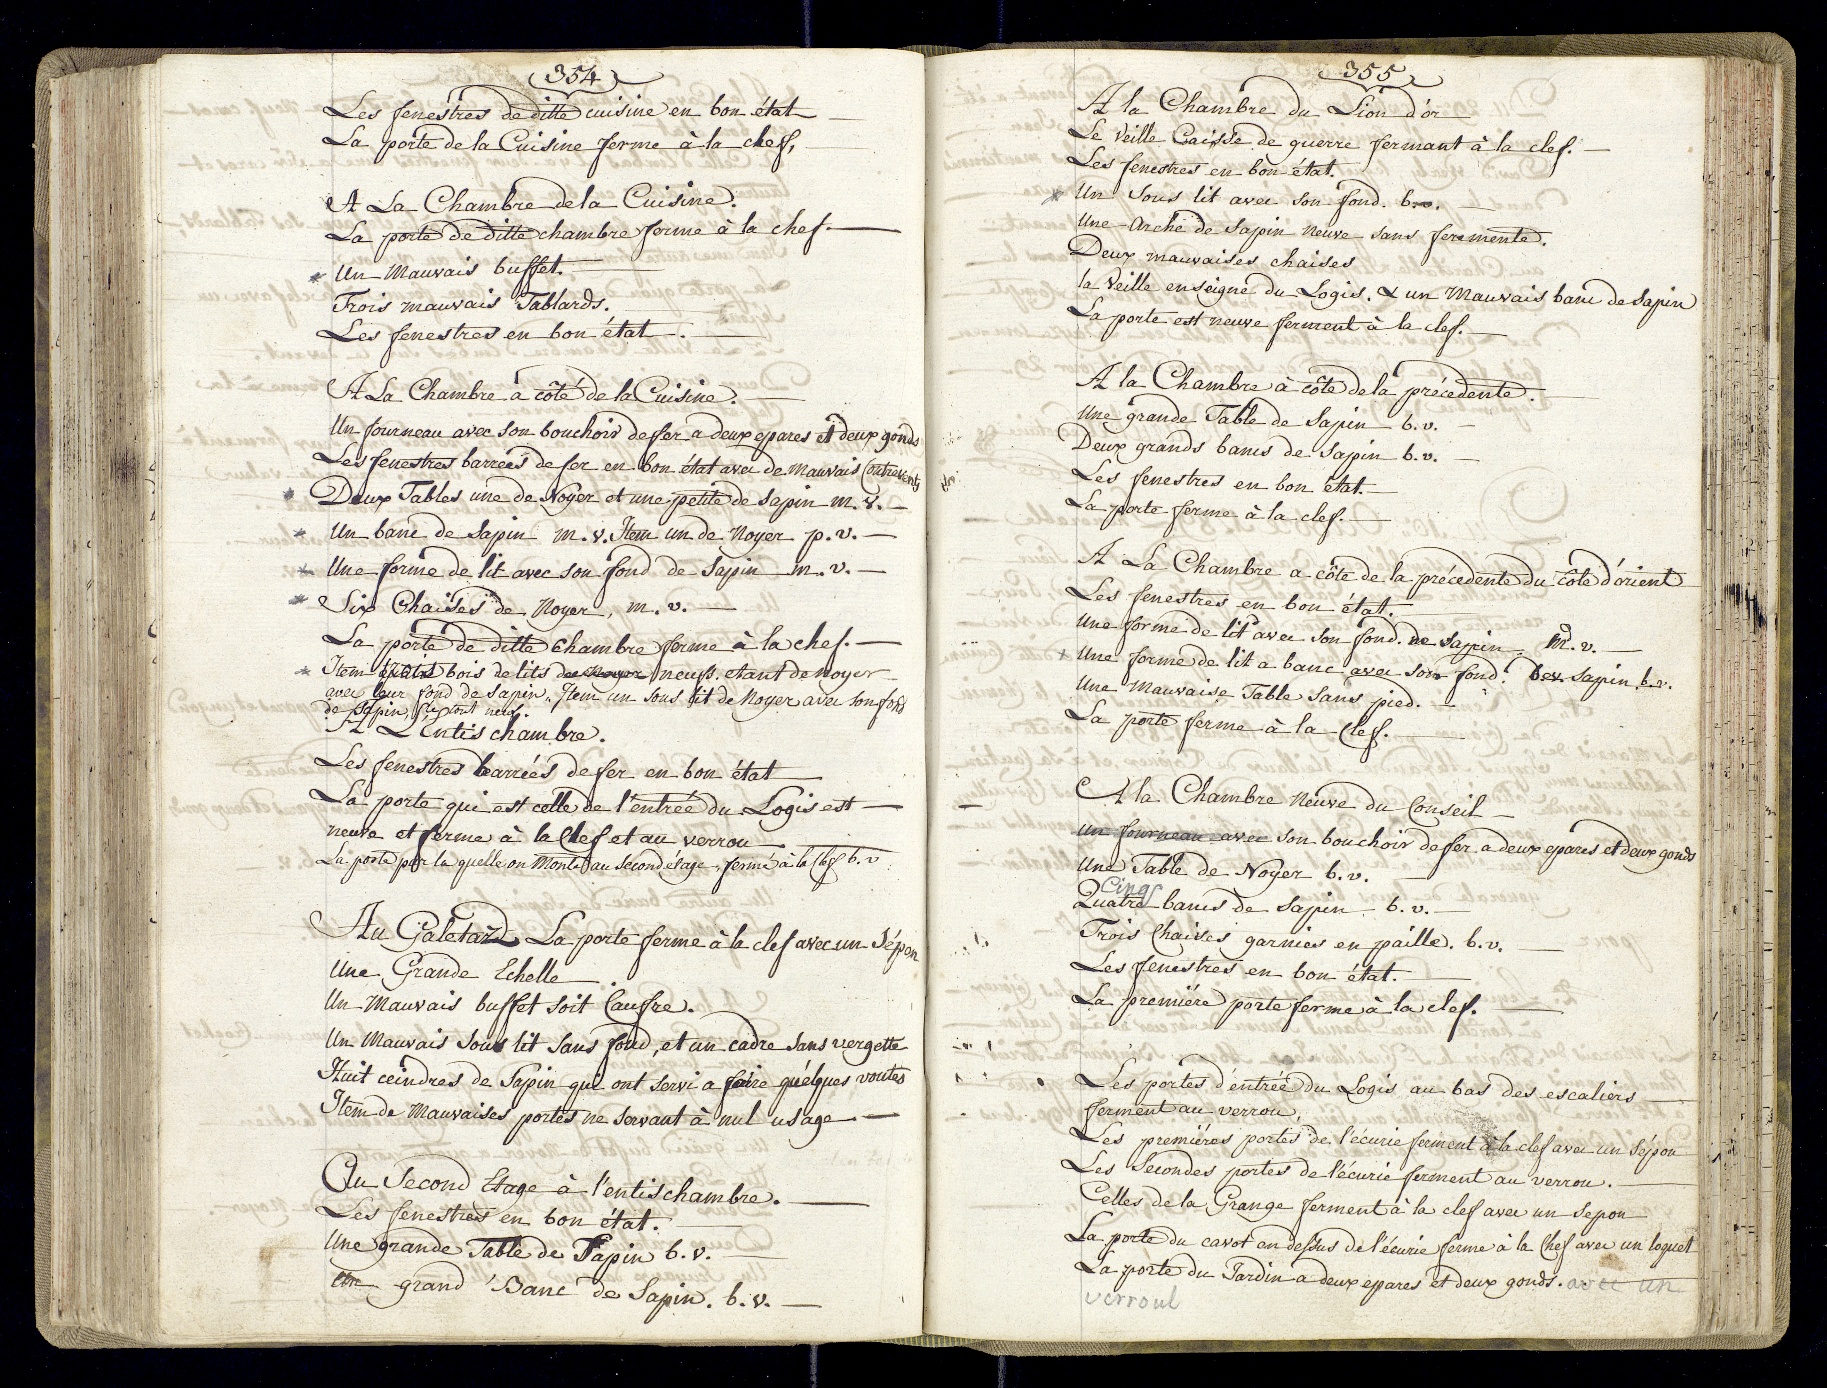 354
Les fenestres de ditte cuisine en bon état
La porte de la Cuisine ferme à la chef,
A La Chambre de la Cuisine.
La porte de ditte chambre ferme à la chef.
* Un Mauvais buffet.
Trois mauvais Tablards.
Les fenestres en bon état.
A La Chambre a côté de la Cuisine.
Un fourneau avec son bouchoir de fer a deux epares et deux gonds
Les fenestres barreés de fer en bon état avec de mauvais Contrevents
* Deux Tables une de Noyer et une petite de sapin m. v.
* Un banc de sapin m. v. Item un de Noyer p. v.
* Une forme de lit avec son fond de sapin m. v.
* Six Chaises de Noyer, m. v.
La porte de ditte chambre ferme à la chef.
* Item quatre bois de lits de Noyer neufs etant de noyer
avec leur fond de sapin, Item un sous lit de Noyer avec son fond
de sapin, le tout neuf.
A L'Entischambre.
Les fenestres barrées de fer en bon état
La porte qui est celle de l'entrée du Logis est
neuve et ferme à la Chef et au verrou
La porte par la quelle on Monte au second étage, ferme à la Clef b. v
Au Galetard La porte ferme à la clef avec un Sépon
Une Grande Echelle.
Un Mauvais buffet soit Cauffre.
Un Mauvais sous lit sans fond, et un cadre sans vergette
Huit ceindres de Sapin qui ont servi a faire quélques voutes
Item de Mauvaises portes ne servant à nul usage
Au Second Etage à l'entischambre.
Les fenestres en bon état.
Une grande Table de Sapin b. v.
Un grand Banc de Sapin. b. v.
355
A la Chambre du Lion d'or
Le Veille Caisse de guerre fermant à la clef.
Les fenestres en bon état.
* Un Sous lit avec son fond. b. v.
Une Arche de sapin neuve sans feremente.
Deux mauvaises chaises
la Veille enseigne du Logis. & un Mauvais banc de Sapin
La porte est neuve ferment à la clef.
A la Chambre à côte de la précedente.
Une grande Table de Sapin b. v.
Deux grands bancs de Sapin b. v.
Les fenestres en bon état.
La porte ferme à la clef.
A La Chambre a côte de la précedente du côte d'orient
Les fenestres en bon état.
Une forme de lit avec son fond de sapin m. v.
+ Une forme de lit a banc avec son fond. sapin b. v.
Une Mauvaise Table sans pied.
La porte ferme à la Clef.
A la Chambre Neuve du Conseil
un fourneau avec son bouchoir de fer a deux epares et deux gonds
Une Table de Noyer b. v.
Cinq
Quatre bancs de Sapin b. v.
Trois Chaises garnies en paille. b. v.
Les fenestres en bon état.
La première porte ferme à la clef.
Les portes d'entrée du Logis au bas des escaliers
ferment au verrou,
Les premiéres portes de l'écurie ferment à la clef avec un Sépon
Les Secondes portes de l'écurie ferment au verrou.
Celles de la Grange ferment à la clef avec un sepon
La porte du cavot en dessus de l'écurie ferme à la Chef avec un loquet
La porte du Jardin a deux epares et deux gonds. avec un
verroul